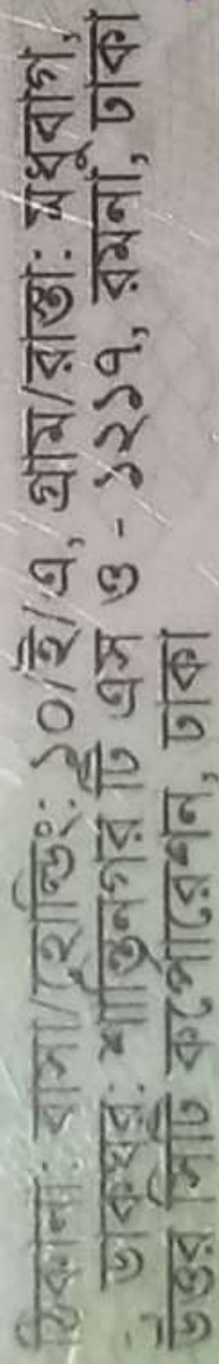 ঠিকানা: বাসা/হোল্ডিং: ১০/ই/এ, গ্রাম/রাস্তা: মধুবাগ,
ডাকঘর: শান্তিনগর টি এস ও - ১২১৭, রমনা, ঢাকা
উত্তর সিটি কর্পোরেশন, ঢাকা